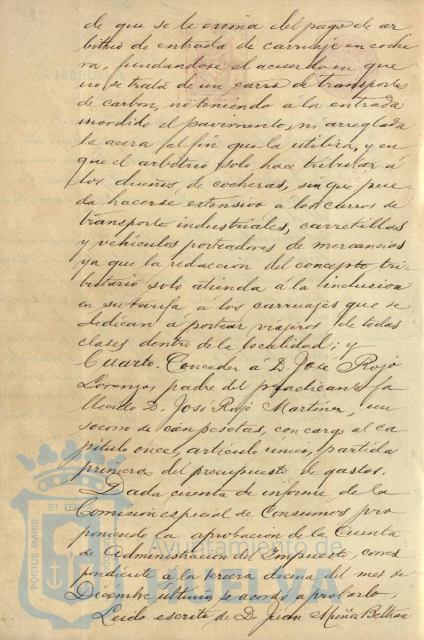 de que se le exima del pago de ar
bitrio de entrada de carruaje en coche
ra, fundandose el acuerdo en que
no se trata de un carro de transporte
de carbon, no teniendo a la entrada
mordido el pavimento, ni arreglada
la acera al fin que la utiliza, y en
que el arbitrio solo hace tributar á
los dueños de cocheras, sin que pue
da hacerse extensivo á los carros de
transporte industriales, carretillas
y vehículos porteadores de mercancias
ya que la redacción del concepto tri-
butario solo atienda á la inclusion
en su tarifa á los carruajes que se
dedican á portear viajeros de todas
clases dentro de la localidad; y
Cuarto. Conceder á D. José Rojo
Lorenzo, padre del practicante fa
llecido D. José Rojo Martinez, un
socorro de cien pesetas, con cargo al ca
pitulo once, artículo único, partida
primera del presupuesto de gastos.
Dada cuenta de informe de la
Comisión especial de Consumos pro
poniendo la aprobación de la Cuenta
de Administración del Impuesto corres
pondiente á la tercera decena del mes de
Diciembre ultimo, se acordó aprobarlo.
Leido escrito de D. Juan Muñoz Beltran
PORTUS MARIS
Ayuntamiento de
HUELVA